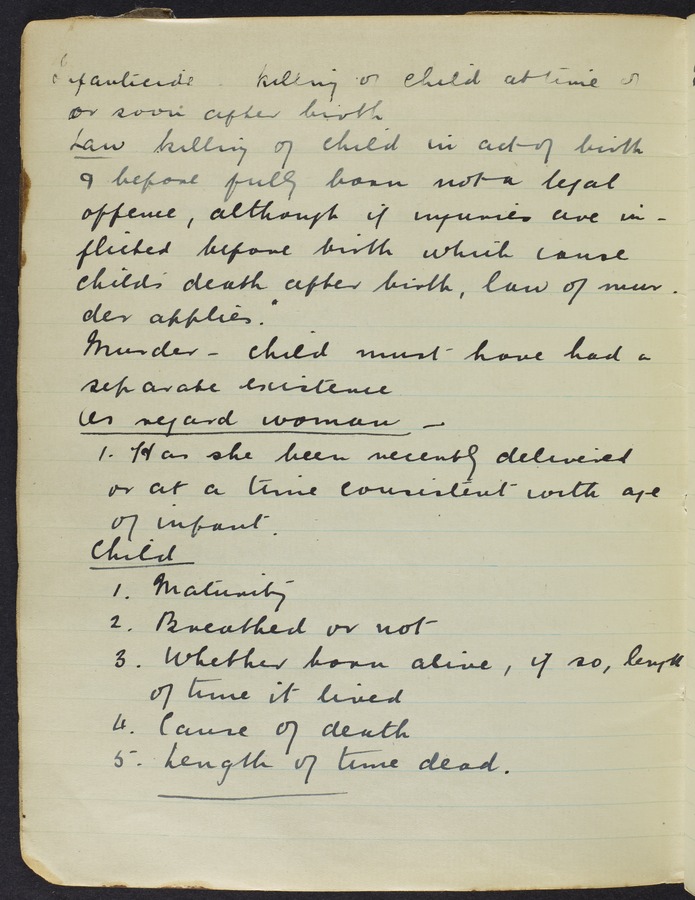 Infanticide . killing of child at time of
or soon after birth
Law killing of child in act of birth
& before fully born not a legal
offence, although if injuries are in-
flicted before birth which cause
childs death after birth, law of mur-
der applies."
Murder - child must have had a
separate existence
As regard woman -
1. Has she been recently delivered
or at a time consistent with age
of infant.
Child
1. Maturity
2. Breathed or not
3. Whether born alive, if so, length
of time it lived
4. Cause of death
5. Length of time dead.